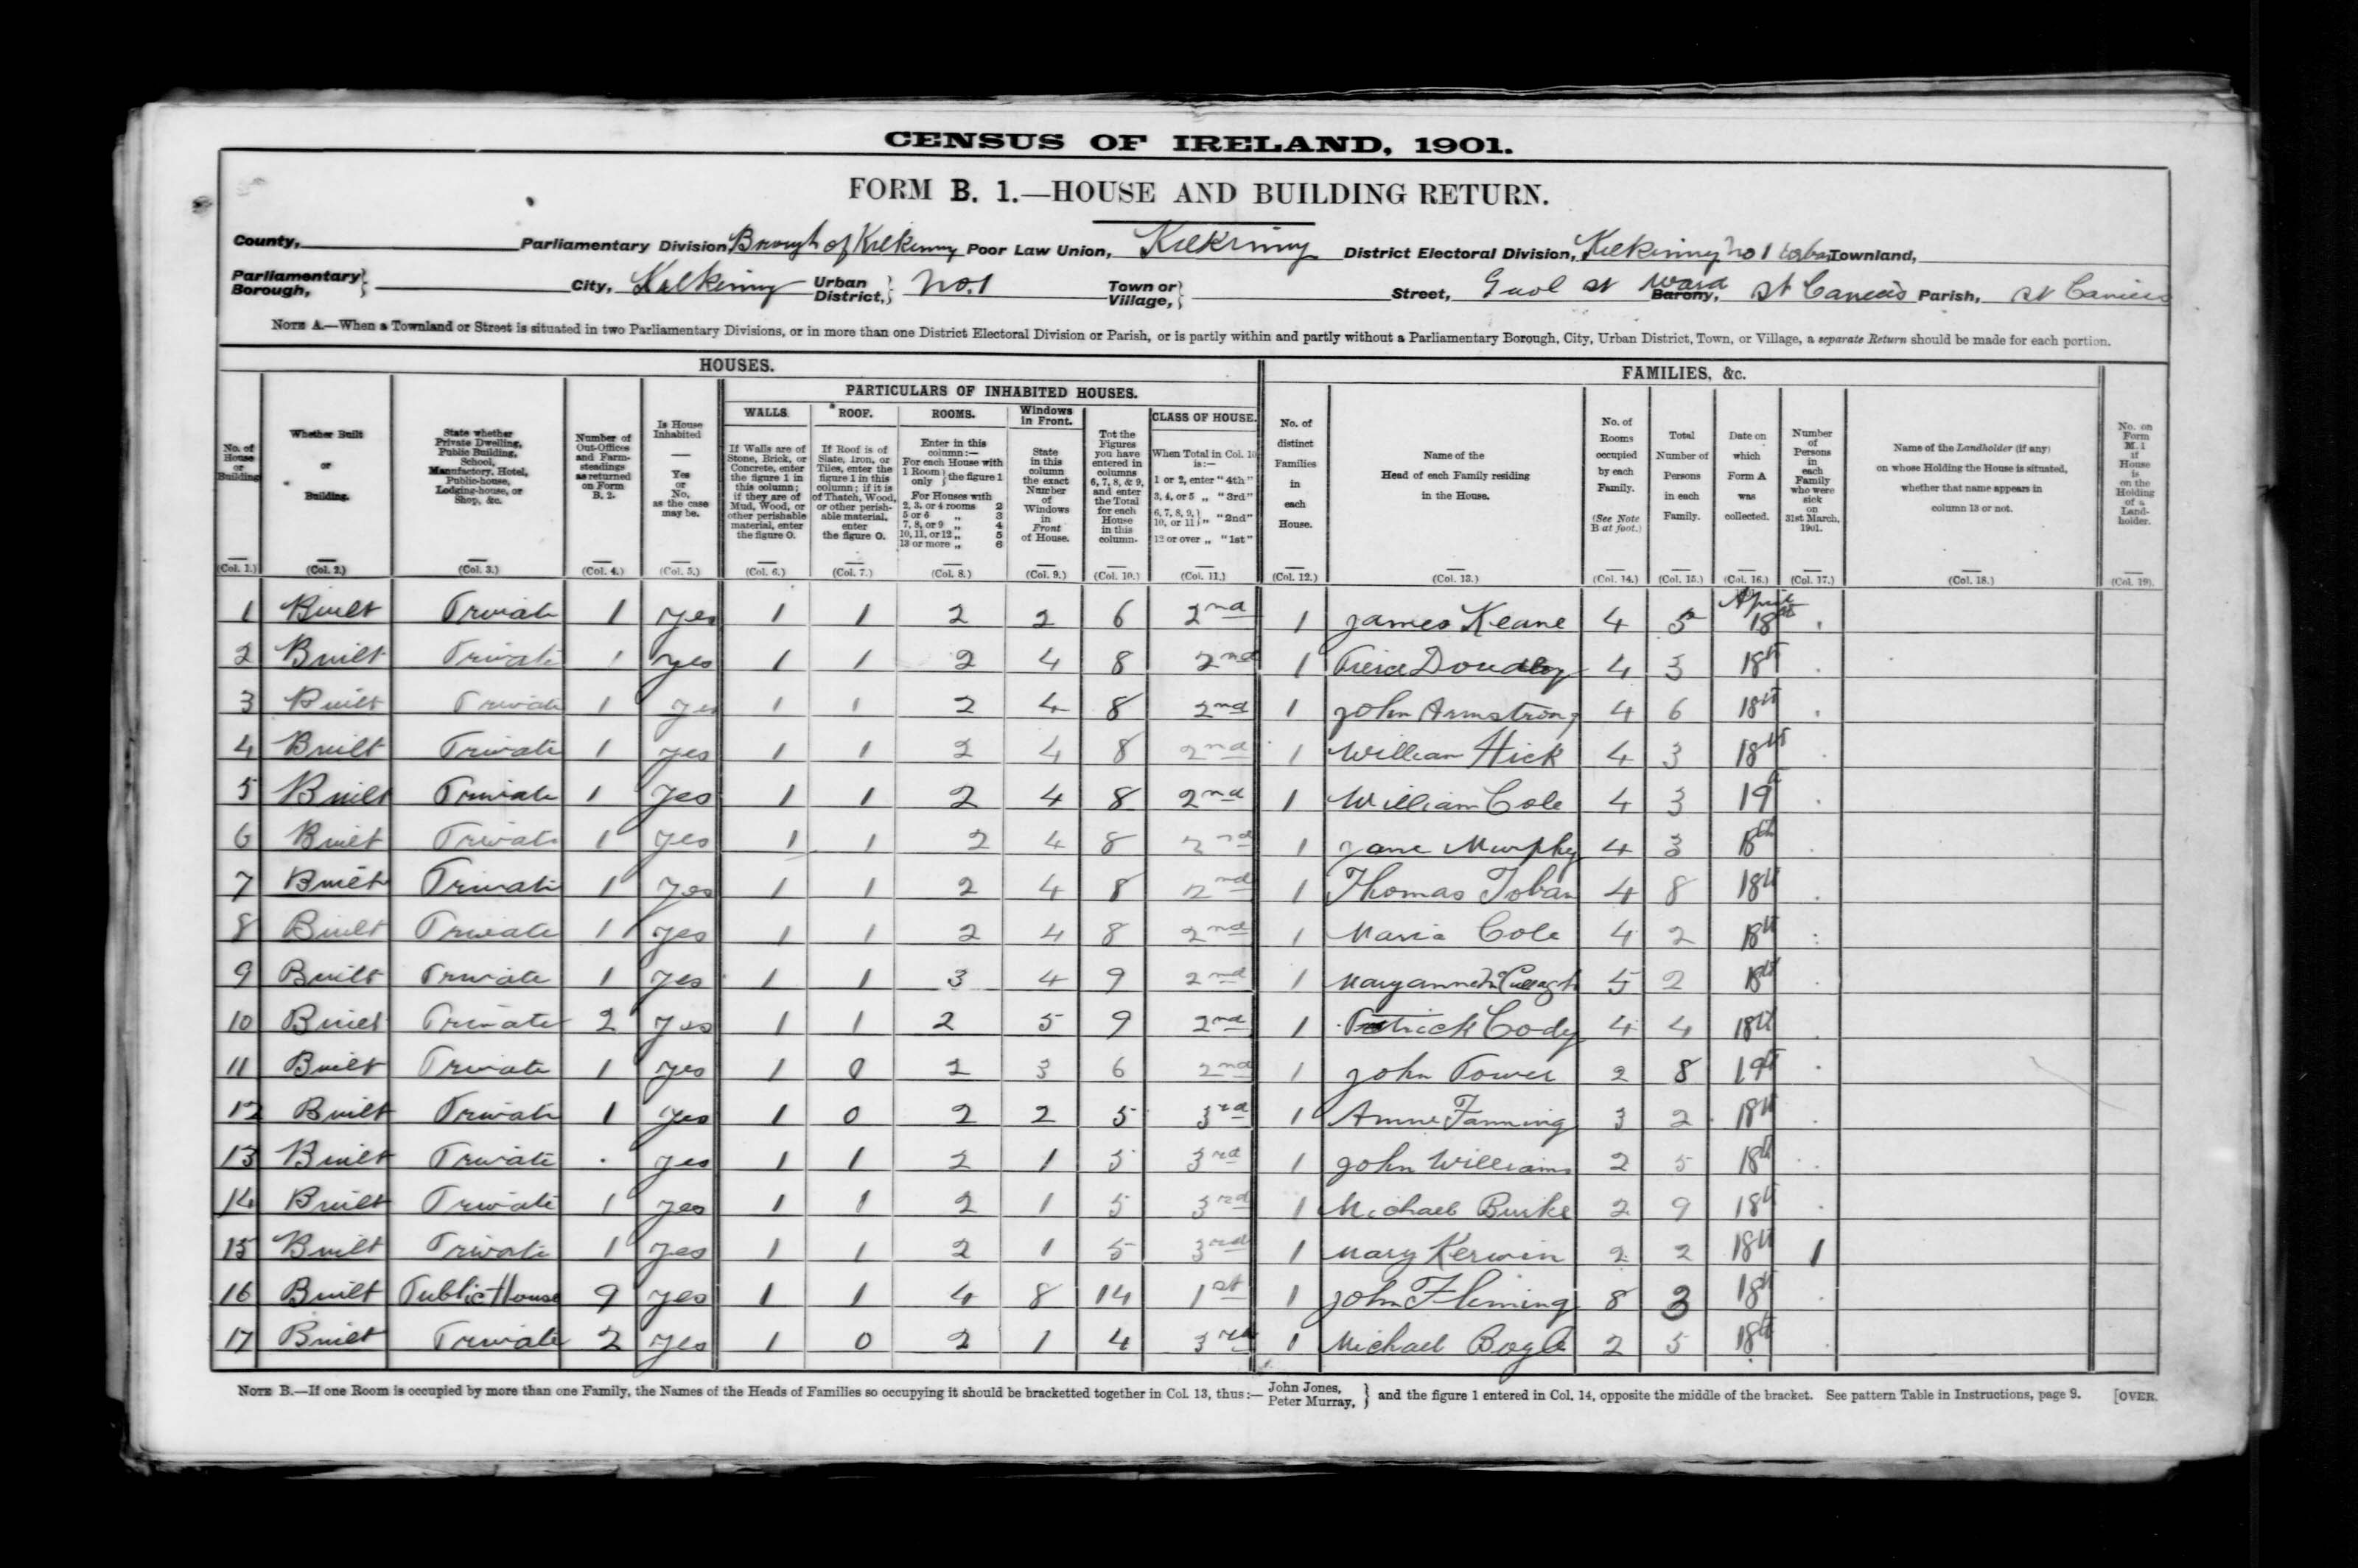 CENSUS OF IRELAND, 1901.
FORM B. 1.—HOUSE AND BUILDING RETURN.
County, Parliamentary Division, Borough of Kilkenny Poor Law Union, Kilkenny District Electoral Division, Kilkenny No 1 Urban Townland,
Parliamentary Borough, } City, Kilkenny Urban District, } No. 1 Town or Village, } Street, Gaol St Ward Barony, St Canices Parish, St Canices
NOTE A.—When a Townland or Street is situated in two Parliamentary Divisions, or in more than one District Electoral Division or Parish, or is partly within and partly without a Parliamentary Borough, City, Urban District, Town, or Village, a separate Return should be made for each portion.
HOUSES. FAMILIES, &c.
PARTICULARS OF INHABITED HOUSES.
WALLS. ROOF. ROOMS. Windows in Front. CLASS OF HOUSE.
No. of House or Building
Whether Built or Building.
State whether Private Dwelling, Public Building, School, Manufactory, Hotel, Public-house, Lodging-house, or Shop, &c.
Number of Out-Offices and Farm-steadings as returned on Form B. 2.
Is House Inhabited — Yes or No, as the case may be.
If Walls are of Stone, Brick, or Concrete, enter the figure 1 in this column; if they are of Mud, Wood, or other perishable material, enter the figure 0.
If Roof is of Slate, Iron, or Tiles, enter the figure 1 in this column; if it is of Thatch, Wood, or other perishable material, enter the figure 0.
Enter in this column:— For each House with 1 Room only } the figure 1 For Houses with 2, 3, or 4 rooms 2 5 or 6 „ 3 7, 8, or 9 „ 4 10, 11, or 12 „ 5 13 or more „ 6
State in this column the exact Number of Windows in Front of House.
Tot the Figures you have entered in columns 6, 7, 8, & 9, and enter the Total for each House in this column.
When Total in Col. 10 is:— 1 or 2, enter "4th" 3, 4, or 5 „ "3rd" 6, 7, 8, 9, 10, or 11 } „ "2nd" 12 or over „ "1st"
No. of distinct Families in each House.
Name of the Head of each Family residing in the House.
No. of Rooms occupied by each Family. (See Note B at foot.)
Total Number of Persons in each Family.
Date on which Form A was collected.
Number of Persons in each Family who were sick on 31st March, 1901.
Name of the Landholder (if any) on whose Holding the House is situated, whether that name appears in column 13 or not.
No. on Form M. 1 if House is on the Holding of a Land-holder.
(Col. 1.) (Col. 2.) (Col. 3.) (Col. 4.) (Col. 5.) (Col. 6.) (Col. 7.) (Col. 8.) (Col. 9.) (Col. 10.) (Col. 11.) (Col. 12.) (Col. 13.) (Col. 14.) (Col. 15.) (Col. 16.) (Col. 17.) (Col. 18.) (Col. 19).
1 Built Private 1 yes 1 1 2 2 6 2nd 1 James Keane 4 5 April 18th
2 Built Private 1 yes 1 1 2 4 8 2nd 1 Pierce 4 3 18th
3 Built Private 1 yes 1 1 2 4 8 2nd 1 John Armstrong 4 6 18th
4 Built Private 1 yes 1 1 2 4 8 2nd 1 William Hick 4 3 18th
5 Built Private 1 yes 1 1 2 4 8 2nd 1 William Cole 4 3 19th
6 Built Private 1 yes 1 1 2 4 8 2nd 1 Jane Murphy 4 3 18th
7 Built Private 1 yes 1 1 2 4 8 2nd 1 Thomas Toban 4 8 18th
8 Built Private 1 yes 1 1 2 4 8 2nd 1 Maria Cole 4 2 18th
9 Built Private 1 yes 1 1 3 4 9 2nd 1 Maryanne 5 2 18th
10 Built Private 2 yes 1 1 2 5 9 2nd 1 Patrick Cody 4 4 18th
11 Built Private 1 yes 1 0 2 3 6 2nd 1 John Power 2 8 19th
12 Built Private 1 yes 1 0 2 2 5 3rd 1 Anne Fanning 3 2 18th
13 Built Private . yes 1 1 2 1 5 3rd 1 John Williams 2 5 18th
14 Built Private 1 yes 1 1 2 1 5 3rd 1 Michael Burke 2 9 18th
15 Built Private 1 yes 1 1 2 1 5 3rd 1 Mary Kerwin 2 2 18th 1
16 Built Public House 9 yes 1 1 4 8 14 1st 1 John Fleming 8 3 18th
17 Built Private 2 yes 1 0 2 1 4 3rd 1 Michael Bogle 2 5 18th
NOTE B.—If one Room is occupied by more than one Family, the Names of the Heads of Families so occupying it should be bracketted together in Col. 13, thus:— John Jones, Peter Murray, } and the figure 1 entered in Col. 14, opposite the middle of the bracket. See pattern Table in Instructions, page 9. [OVER.